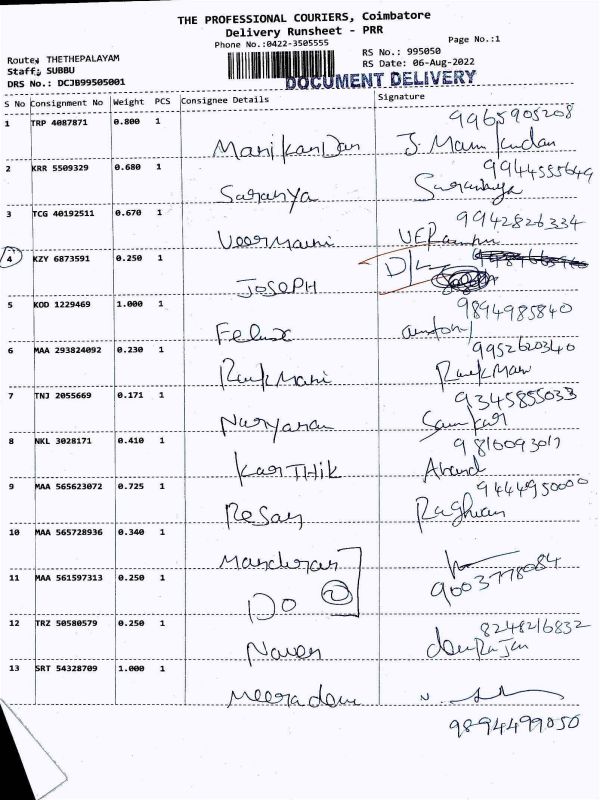 THE PROFESSIONAL COURIERS, Coimbatore
Delivery Runsheet - PRR
Phone No.:0422-3505555
Page No.:1
Route: THETHEPALAYAM
Staff: SUBBU
DRS No.: DCJB99505001
RS No.: 995050
RS Date: 06-Aug-2022
DOCUMENT DELIVERY
S No Consignment No Weight PCS Consignee Details Signature
9965905208
1 TRP 4087871 0.800 1
Manikandan J. Manikandan
9944555649
2 KRR 5509329 0.680 1
Saranya
9942826334
3 TCG 40192511 0.670 1
Veermani
4 KZY 6873591 0.250 1 D/L
JOSEPH
9894985840
5 KOD 1229469 1.000 1
Felix antony
9952620340
6 MAA 293824092 0.230 1
9345855033
7 TNJ 2055669 0.171 1
Naryanan Sankar
8 NKL 3028171 0.410 1
KarTHik Anand
9444950000
9 MAA 565623072 0.725 1
Raghvan
10 MAA 565728936 0.340 1
9003778084
11 MAA 561597313 0.250 1
DO 2
8248216832
12 TRZ 50580579 0.250 1
Naven
13 SRT 54328709 1.000 1
Meeradevi
9894499050